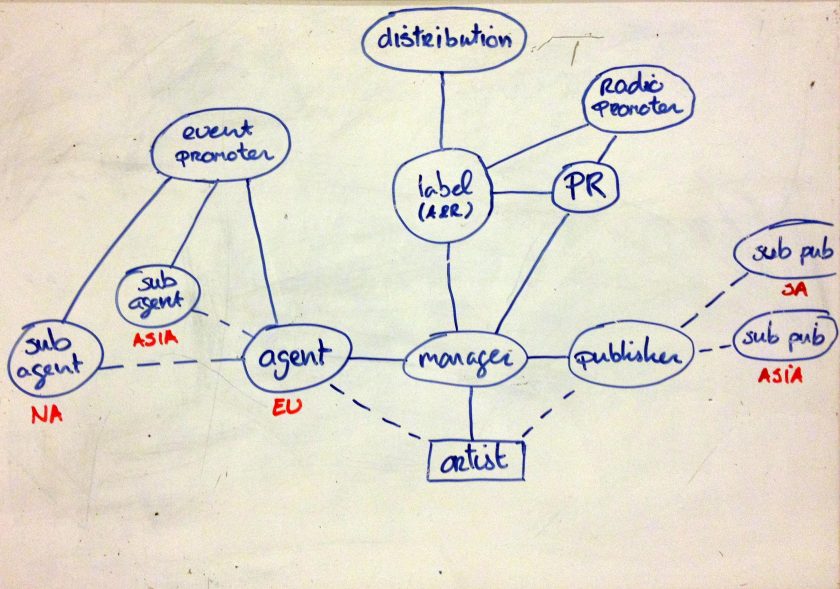 distribution
Radio
Promoter
event
promoter
label
(A&R)
PR
sub pub
SA
sub
agent
ASIA
sub
agent
NA
agent
EU
manager
publisher
sub pub
ASIA
artist